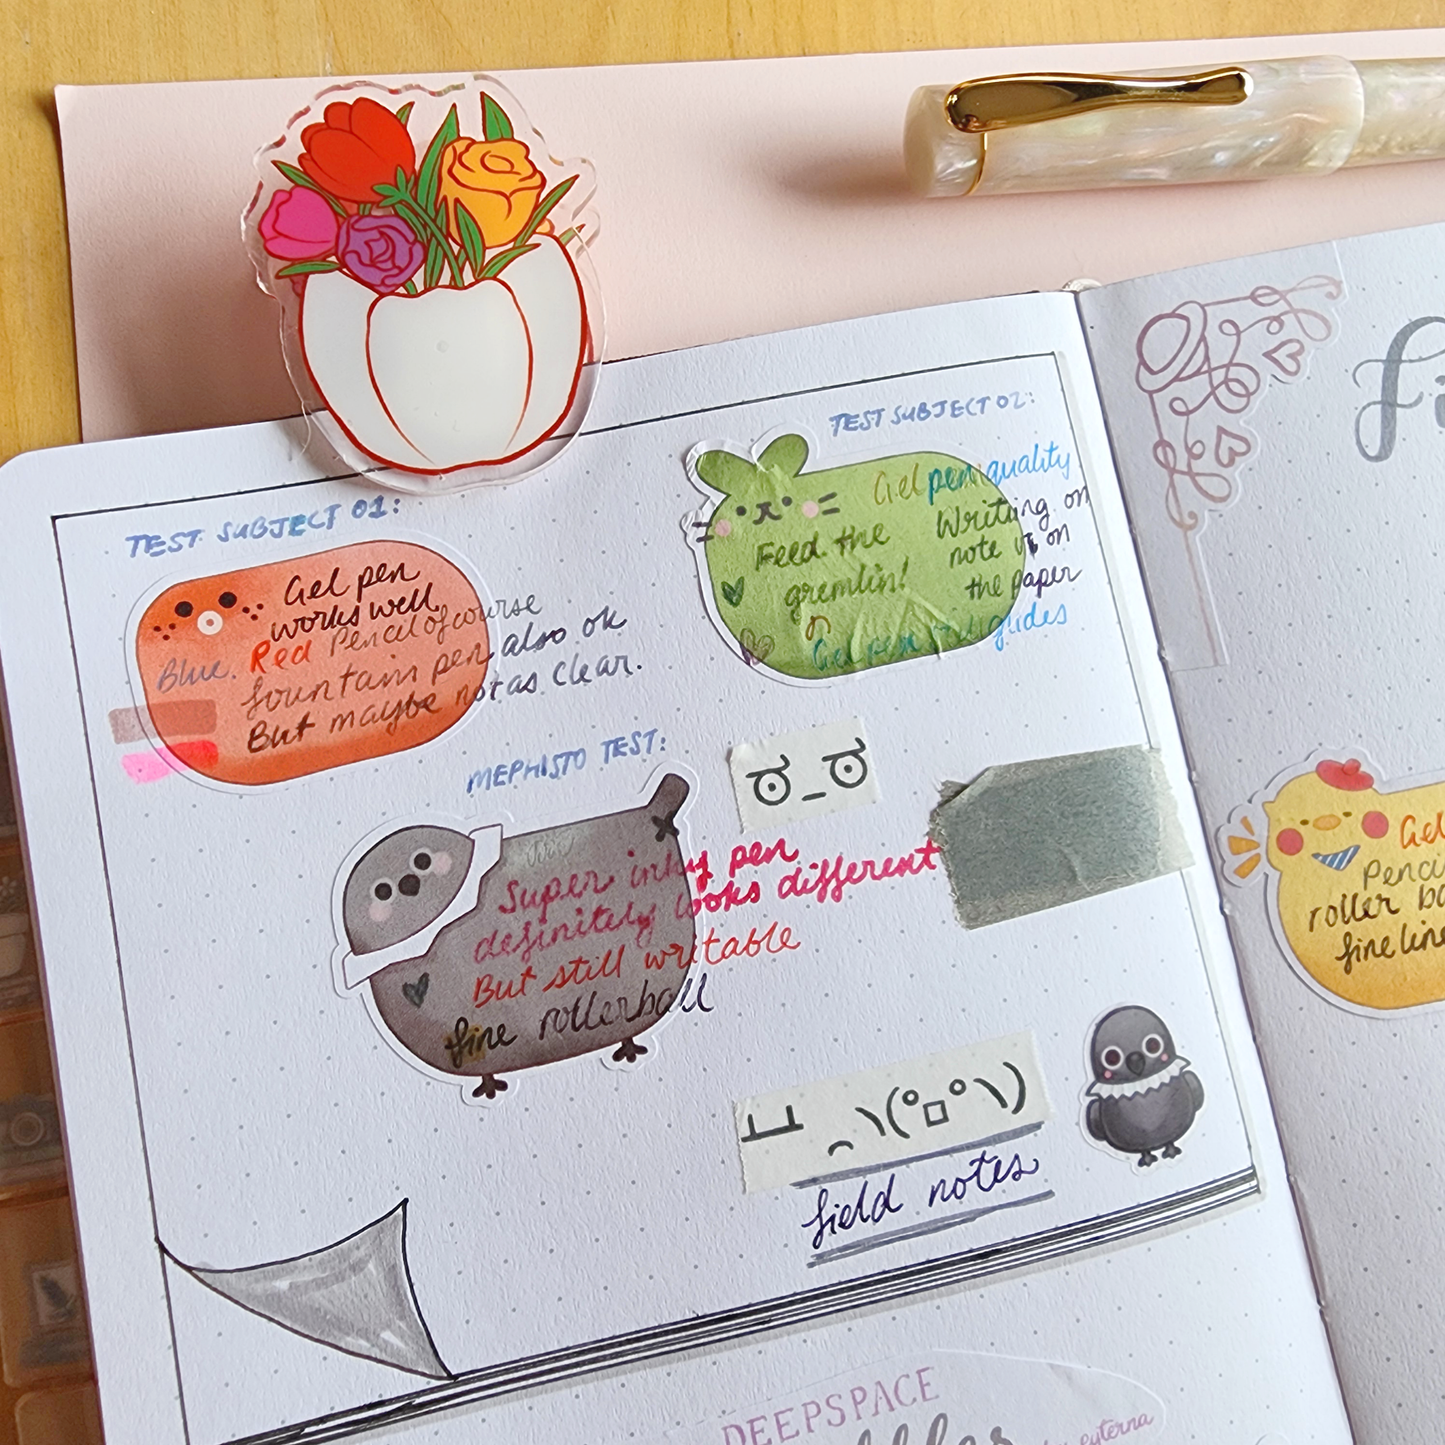 TEST SUBJECT 01:
Gel pen
works well
Blue. Red Pencil of course
fountain pen also ok
But maybe not as clear.
TEST SUBJECT 02:
Gel pen quality
Feed the
gremlin!
Writing on
note vs on
the paper
Gel pen glides
MEPHISTO TEST:
Super inky pen
definitely looks different
But still writable
fine rollerball
ಠ_ಠ
field notes
Gel
Penci
roller ba
fine line
fi
DEEPSPACE